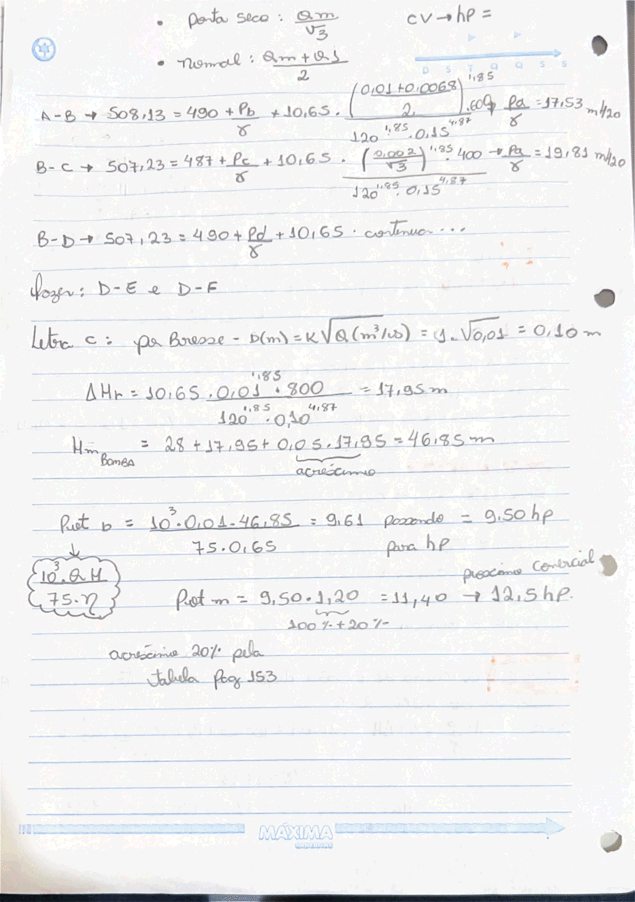 • Ponta seca: Qm/√3 CV → hp =
• normal: (Qm + QJ)/2
D S T Q Q S S
A-B → 508,13 = 490 + Pb/γ + 10,65 · ((0,01+0,0068)/2)^1,85 · 600 / (120^1,85 · 0,15^4,87) Pa/γ = 17,53 m/20
B-C → 507,23 = 487 + Pc/γ + 10,65 · (0,002/√3)^1,85 · 400 / (120^1,85 · 0,15^4,87) → Pa/γ = 19,81 m/20
B-D → 507,23 = 490 + Pd/γ + 10,65 · continua ...
fazer: D-E e D-F
Letra c: por Bresse - D(m) = K√Q(m³/s) = 1·√0,01 = 0,10 m
ΔHr = 10,65 · 0,01^1,85 · 800 / (120^1,85 · 0,10^4,87) = 17,95 m
Hm Bomba = 28 + 17,95 + 0,05 · 17,95 = 46,85 m
acréscimo
Pot b = 10³ · 0,01 · 46,85 / (75 · 0,65) = 9,61 passando para hp = 9,50 hp
10³ · Q · H / (75 · η)
próximo comercial
Pot m = 9,50 · 1,20 = 11,40 → 12,5 hp.
100% + 20%
acréscimo 20% pela
tabela pag 153
MÁXIMA